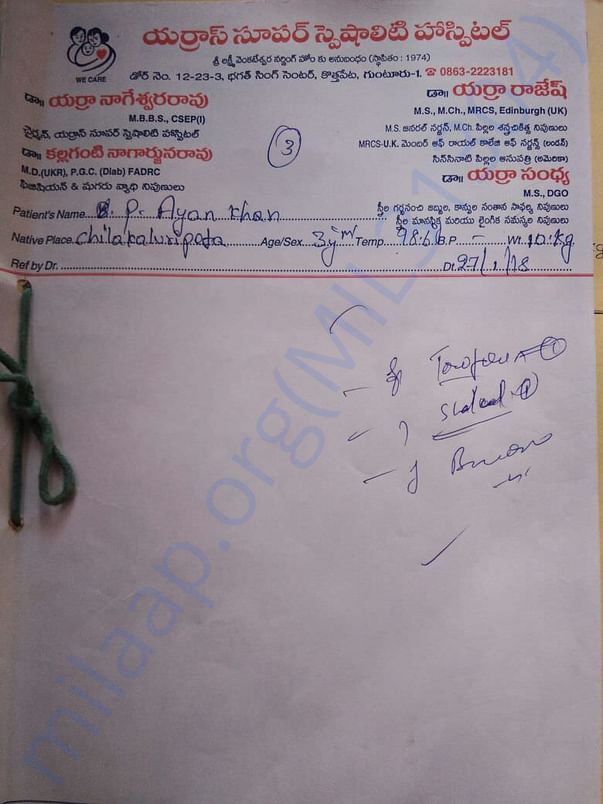 యర్రాస్ సూపర్ స్పెషాలిటి హాస్పిటల్
శ్రీ లక్ష్మీ వెంకటేశ్వర నర్శింగ్ హోం కు అనుబంధం (స్థాపితం : 1974)
WE CARE
డోర్ నెం. 12-23-3, భగత్ సింగ్ సెంటర్, కొత్తపేట, గుంటూరు-1. ☎ 0863-2223181
డా॥ యర్రా నాగేశ్వరరావు
M.B.B.S., CSEP(I)
ఛైర్మన్, యర్రాస్ సూపర్ స్పెషాలిటి హాస్పిటల్
డా॥ కల్లగంటి నాగార్జునరావు
M.D.(UKR), P.G.C. (Diab) FADRC
ఫిజిషియన్ & మగరు వ్యాధి నిపుణులు
3
డా॥ యర్రా రాజేష్
M.S., M.Ch., MRCS, Edinburgh (UK)
M.S. జనరల్ సర్జన్, M.Ch. పిల్లల శస్త్రచికిత్స నిపుణులు
MRCS-U.K. మెంబర్ ఆఫ్ రాయల్ కాలేజి ఆఫ్ సర్జన్స్ (లండన్)
సిన్‌సినాటి పిల్లల ఆసుపత్రి (అమెరికా)
డా॥ యర్రా సంధ్య
M.S., DGO
స్త్రీల గర్భసంచి జబ్బుల, కాన్పుల సంతాన సాఫల్య నిపుణులు
స్త్రీల మానసిక మరియు లైంగిక సమస్యల నిపుణులు
Patient's Name P. Ayan Khan
Native Place Chilakaluripeta Age/Sex 3y/m Temp 98.6 B.P - Wt 10.Kg
Ref by Dr. Dt. 27/1/18
milaap.org(MIL